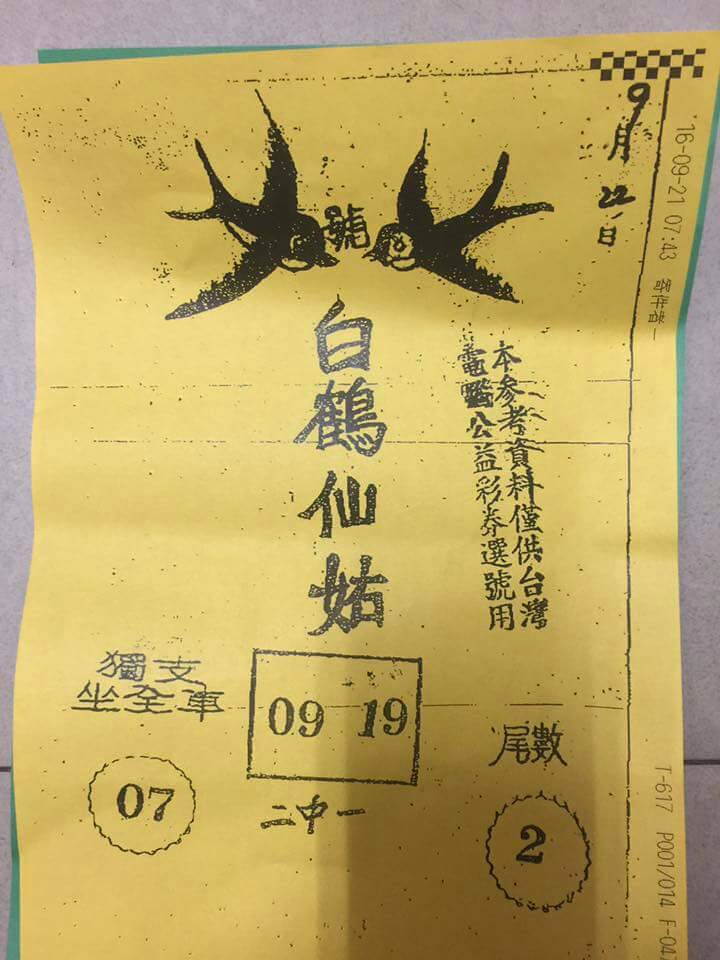 9月22日
16-09-21 07:43 寄件者-
號
白鶴仙姑
本參考資料僅供台灣
電腦公益彩券選號用
獨支
坐全車
07
09 19
二中一
尾數
2
T-617 P001/014 F-047